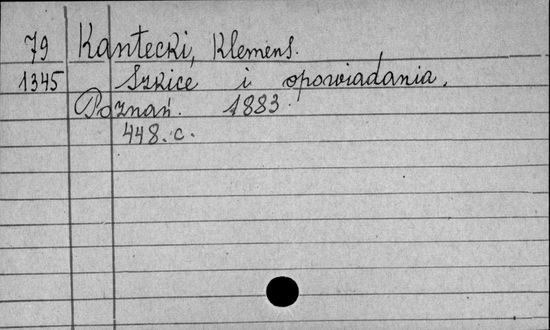 79 Kantecki, Klemens.
1345 Szkice i opowiadania.
Poznań. 1883.
448. c.